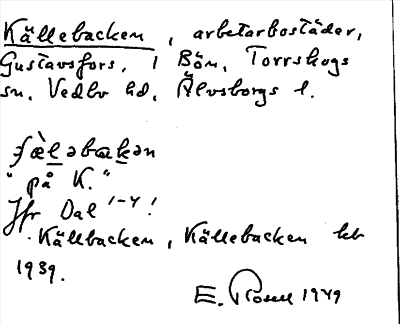 Källebacken, arbetarbostäder,
Gustavsfors, i Bön, Torrskogs
sn. Vedbo hd. Älvsborgs l.
ʒæ̀l əbakən
"på K."
Jfr Dal 1-4!
Källbacken, Källebacken kb
1939.
E. Rosell 1949